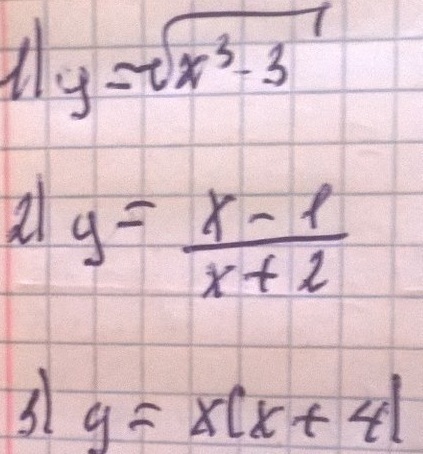 1) y = √(x³ - 3)
2) y = (x - 1)/(x + 2)
3) y = x(x + 4)